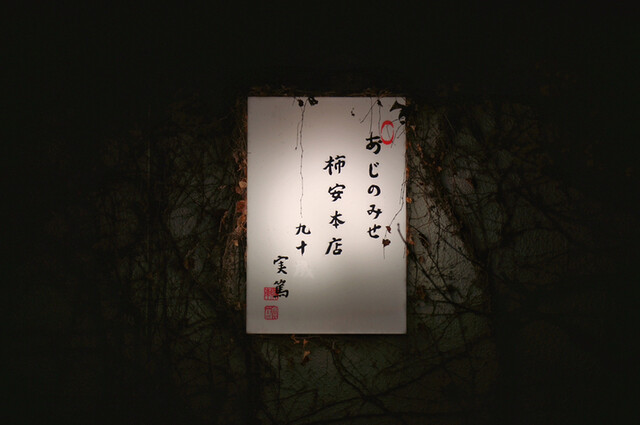 あじのみせ
柿安本店
九十
実篤